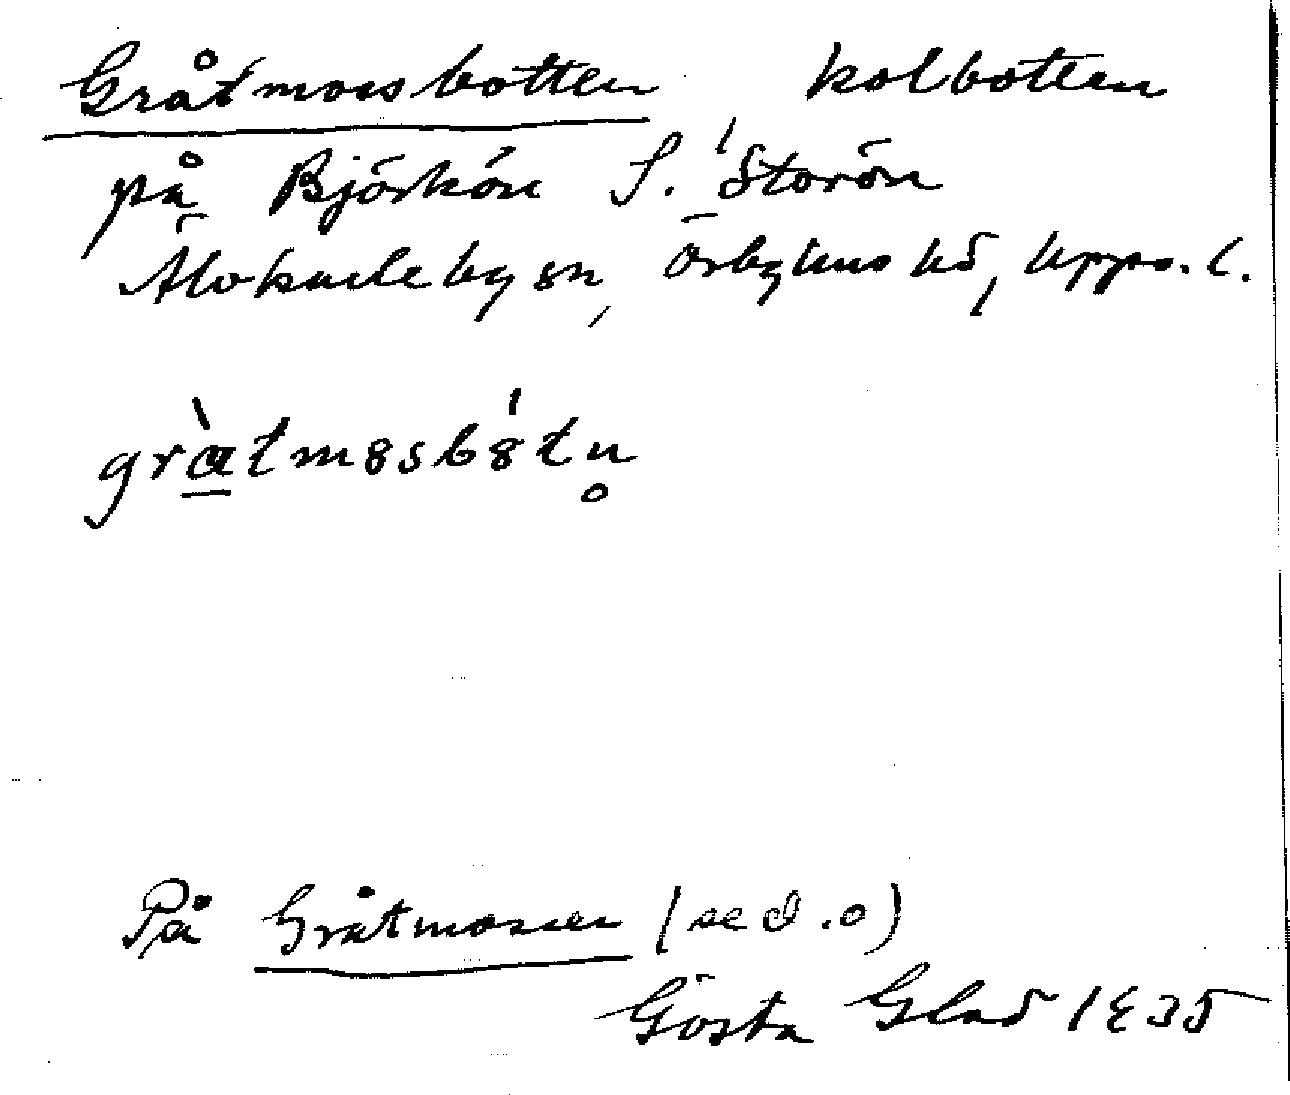 Gråtmossbotten kolbotten
på Björkön S. Storön
Älvkarleby sn, Örbyhus hd, Upps. l.
gràtmɷsbɷ́tn̥
På Gråtmossen (se d.o)
Gösta Glad 1935